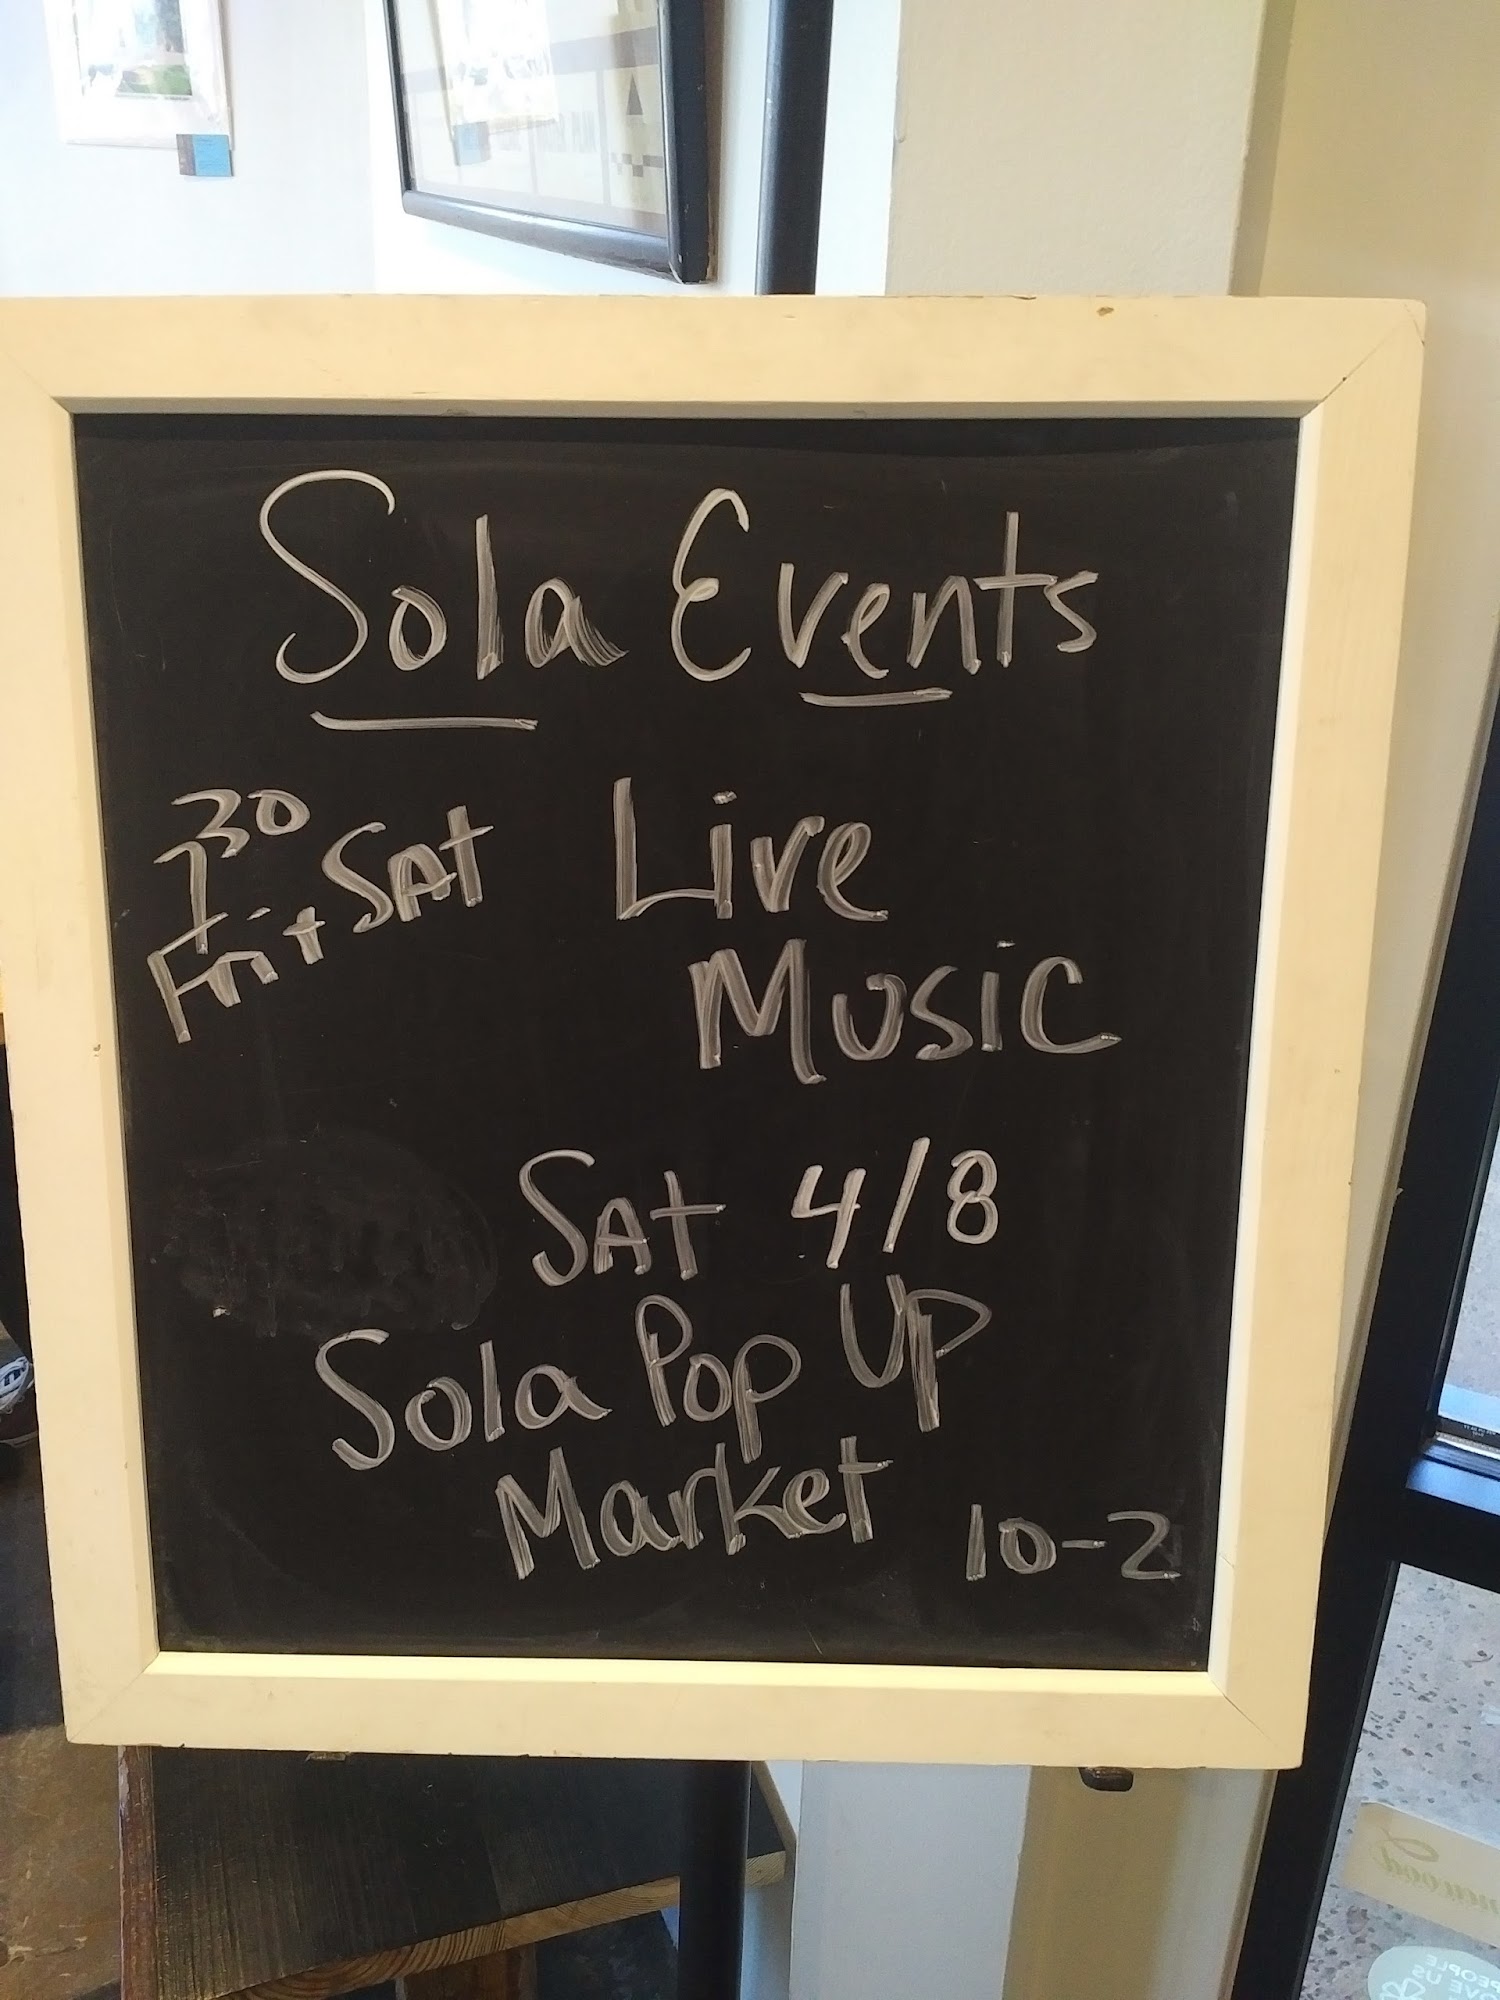 Sola Events
7 30
Fri + SAT
Live
Music
SAT 4/8
Sola Pop UP
Market 10-2
PEOPLE